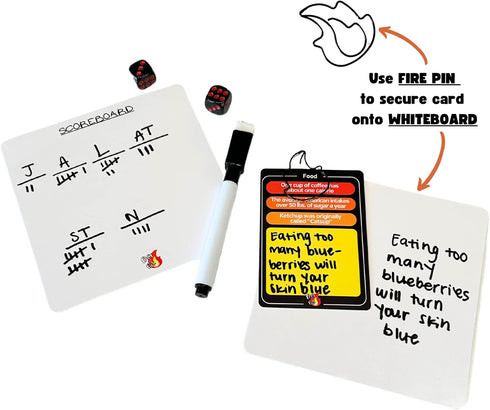 Use FIRE PIN
to secure card
onto WHITEBOARD
SCOREBOARD
J A L AT
ST N
Food
One cup of coffee has
about one calorie
The average American intakes
over 50 lbs. of sugar a year
Ketchup was originally
called "Catsup"
Eating too
many blue-
berries will
turn your
skin blue
Eating too
many
blueberries
will turn
your skin
blue